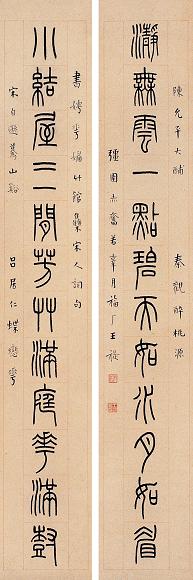 瀞無雲一點碧天如水月如眉
陳允平大酺
秦觀醉桃源
彊圉赤奮若辜月福厂王禔
小結屋三間芳艸滿庭華滿樹
書娉華媚竹館集宋人詞句
宋自遜驀山谿
呂居仁蝶戀華